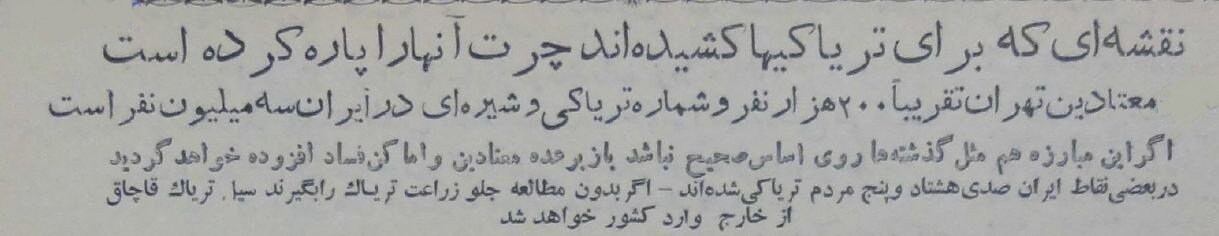 نقشه‌ای که برای تریاکیها کشیده‌اند چرت آنها را پاره کرده است
معتادین تهران تقریباً ۲۰۰ هزار نفر و شماره تریاکی و شیره‌ای در ایران سه میلیون نفر است
اگر این مبارزه هم مثل گذشته‌ها روی اساس صحیح نباشد باز برعده معتادین و اماکن فساد افزوده خواهد گردید
در بعضی نقاط ایران صدی هشتاد و پنج مردم تریاکی شده‌اند - اگر بدون مطالعه جلو زراعت تریاك را بگیرند سیل تریاك قاچاق
از خارج وارد کشور خواهد شد